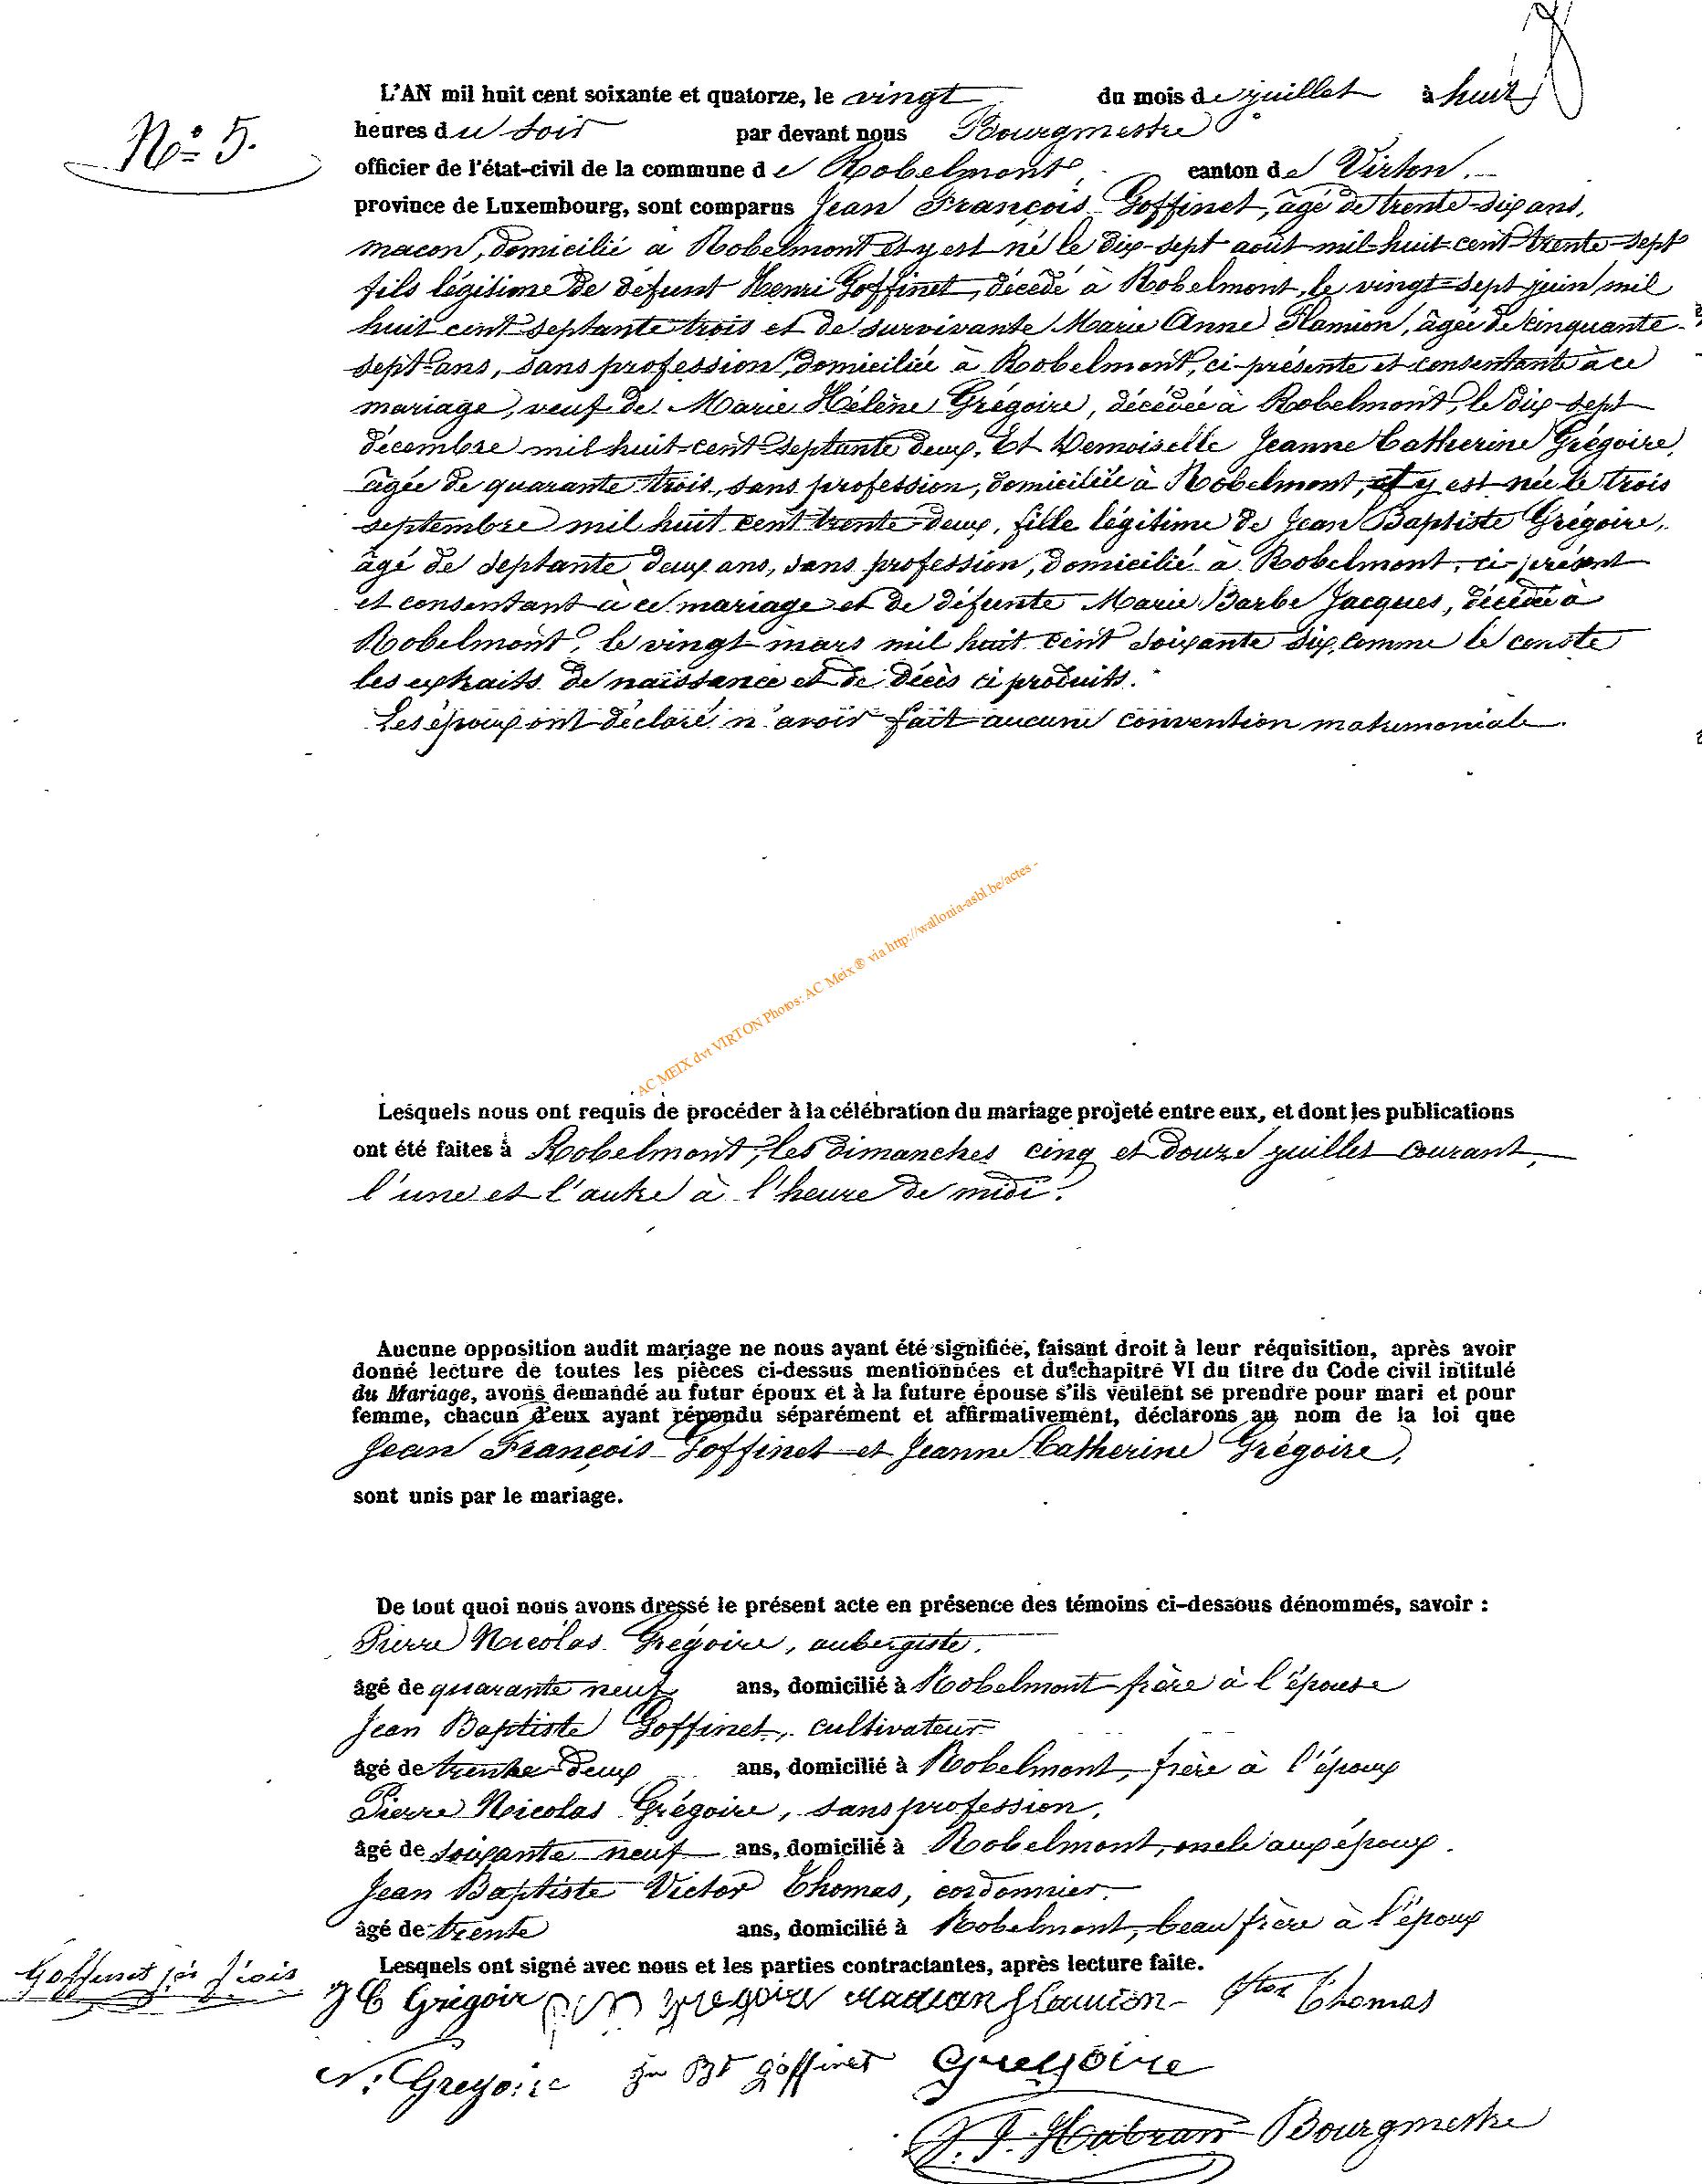 N° 5.
L'AN mil huit cent soixante et quatorze, le vingt du mois de juillet à huit
heures du soir par devant nous Bourgmestre
officier de l'état-civil de la commune de Robelmont, canton de Virton.
province de Luxembourg, sont comparus Jean François Goffinet, âgé de trente-six ans,
macon, domicilié à Robelmont et y est né le dix-sept août mil huit cent trente-sept
fils légitime de défunt Henri Goffinet, décédé à Robelmont, le vingt-sept juin mil
huit cent septante trois et de survivante Marie Anne Flamion, âgée de cinquante
sept ans, sans profession, domiciliée à Robelmont, ci-présente et consentante à ce
mariage, veuf de Marie Hélène Grégoire, décédée à Robelmont, le dix-sept
décembre mil huit-cent septante deux. Et Demoiselle Jeanne Catherine Grégoire,
âgée de quarante trois, sans profession, domiciliée à Robelmont, et y est née le trois
septembre mil huit cent trente-deux, fille légitime de Jean Baptiste Grégoire,
âgé de septante deux ans, sans profession, domicilié à Robelmont, ci-présent
et consentant à ce mariage et de défunte Marie Barbe Jacques, décédée à
Robelmont, le vingt mars mil huit cent soixante six, comme le conste
les extraits de naissance et de décès ci produits.
Les époux ont déclaré n'avoir fait aucune convention matrimoniale.
AC MEIX dvt VIRTON Photos: AC Meix ® via http://wallonia-asbl.be/actes -
Lesquels nous ont requis de procéder à la célébration du mariage projeté entre eux, et dont les publications
ont été faites à Robelmont, les dimanches cinq et douze juillet courant,
l'une et l'autre à l'heure de midi.
Aucune opposition audit mariage ne nous ayant été signifiée, faisant droit à leur réquisition, après avoir
donné lecture de toutes les pièces ci-dessus mentionnées et du chapitre VI du titre du Code civil intitulé
du Mariage, avons demandé au futur époux et à la future épouse s'ils veulent se prendre pour mari et pour
femme, chacun d'eux ayant répondu séparément et affirmativement, déclarons au nom de la loi que
Jean François Goffinet et Jeanne Catherine Grégoire,
sont unis par le mariage.
De tout quoi nous avons dressé le présent acte en présence des témoins ci-dessous dénommés, savoir :
Pierre Nicolas Grégoire, aubergiste.
âgé de quarante neuf ans, domicilié à Robelmont frère à l'épouse
Jean Baptiste Goffinet, cultivateur
âgé de trente deux ans, domicilié à Robelmont, frère à l'époux
Pierre Nicolas Grégoire, sans profession,
âgé de soixante neuf ans, domicilié à Robelmont, oncle aux époux.
Jean Baptiste Victor Thomas, cordonnier.
âgé de trente ans, domicilié à Robelmont, beau frère à l'époux
Lesquels ont signé avec nous et les parties contractantes, après lecture faite.
Goffinet jn fçois
J C Grégoir Gregoire marian flamion Thomas
N: Gregoire Jn Bt goffinet Gregoire
J. J. Habran Bourgmestre